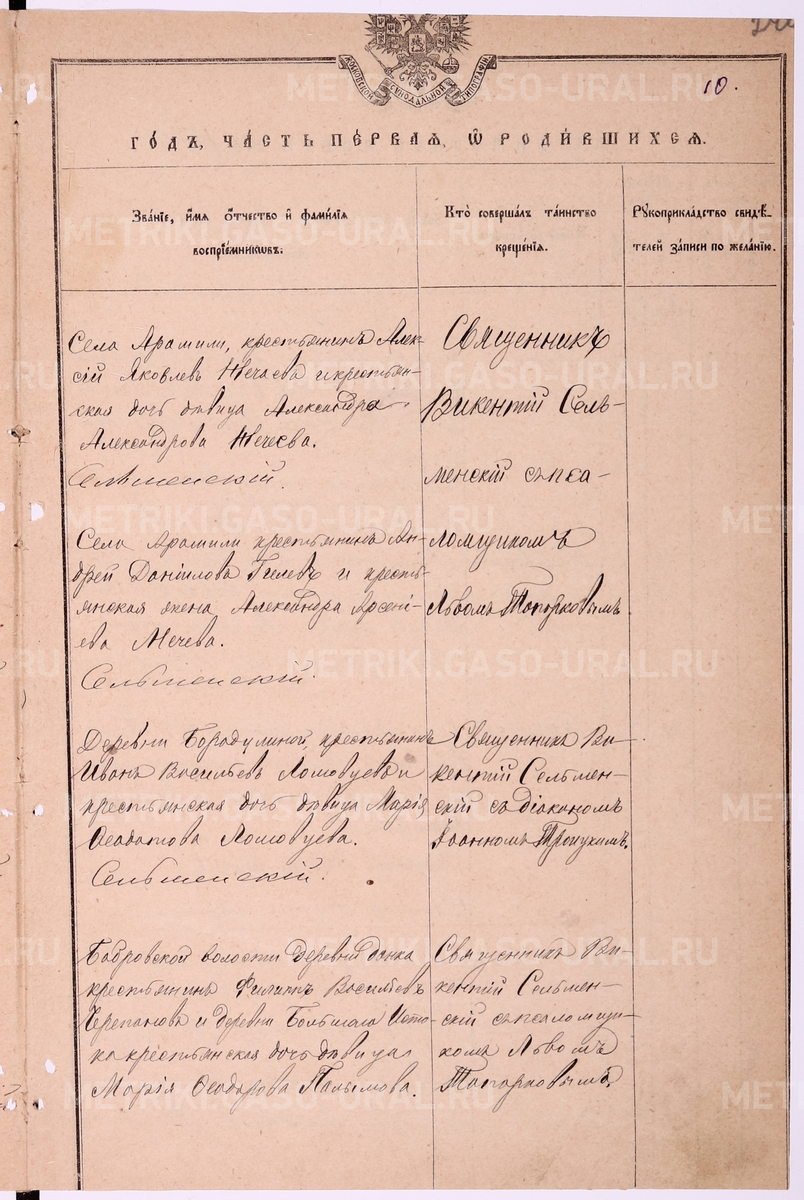 МОСКОВСКОЙ СѴНОДАЛЬНОЙ ТИПОГРАФІИ
10.
ГО́ДЪ, ЧА́СТЬ ПЕ́РВАЯ, Ѡ РОДИ́ВШИХСЯ.
Зва́ніе, и́мя ѻ́тчество и҆ фами́лія
воспріе́мниковъ.
Кто̀ соверша́лъ та́инство
креще́нія.
Рꙋкоприкла́дство свидѣ́-
телей за́писи по жела́нію.
Села Арамили, крестьянинъ Алек-
сій Яковлевъ Нечаевъ и крестьян-
ская дочь дѣвица Александра
Александрова Нечаева.
Сельменскій.
Священникъ
Викентій Сель-
менскій съ пса-
ломщикомъ
Львомъ Топорковымъ
Села Арамили крестьянинъ Ан-
дрей Даніиловъ Гилевъ и кресть-
янская жена Александра Арсені-
ева
Сельменскій.
Деревни Бородулиной, крестьянинъ
Иванъ Васильевъ Ломовцевъ и
крестьянская дочь дѣвица Марія
Ѳеодотова Ломовцева.
Сельменскій.
Священникъ Ви-
кентій Сельмен-
скій съ діакономъ
Іоанномъ
Бобровской волости деревни
крестьянинъ Филиппъ Васильевъ
Черепановъ и деревни Большаго Исто-
ка крестьянская дочь дѣвица
Марія Ѳеодорова
Священникъ Ви-
кентій Сельмен-
скій съ псаломщи-
комъ Львомъ
Топорковымъ.
METRIKI.GASO-URAL.RU